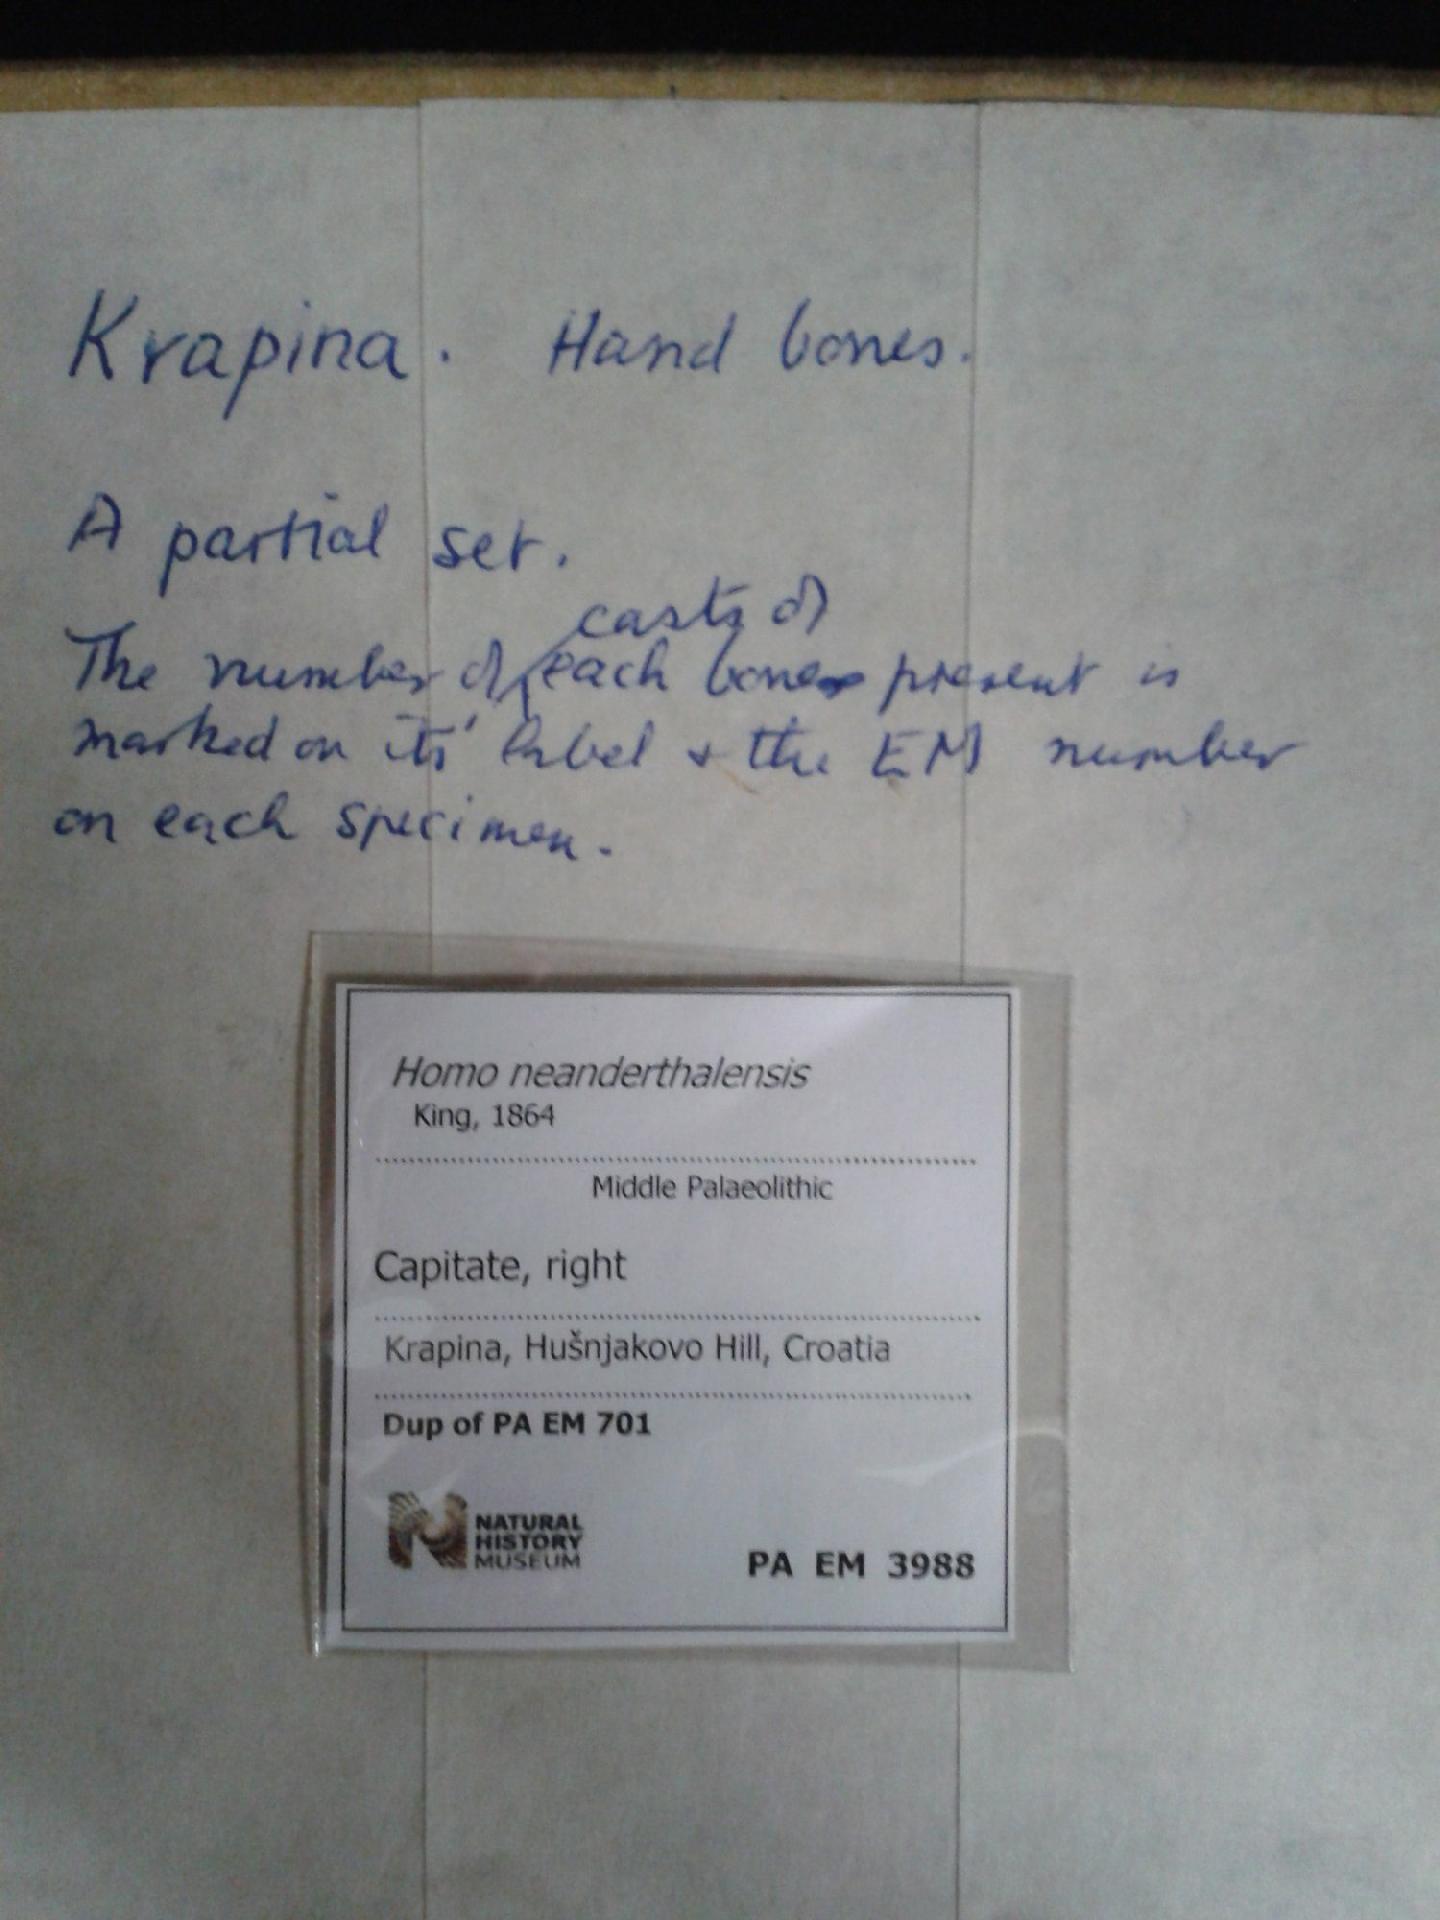 Krapina. Hand bones.
A partial set.
casts of
The number of each bone present is
marked on its' label & the EM number
on each specimen.
Homo neanderthalensis
King, 1864
Middle Palaeolithic
Capitate, right
Krapina, Hušnjakovo Hill, Croatia
Dup of PA EM 701
NATURAL
HISTORY
MUSEUM
PA EM 3988